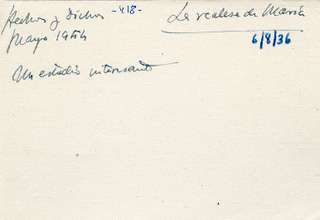 Hechos y Dichos -418-
Mayo 1954
La realeza de María
6/8/36
Un estudio interesante